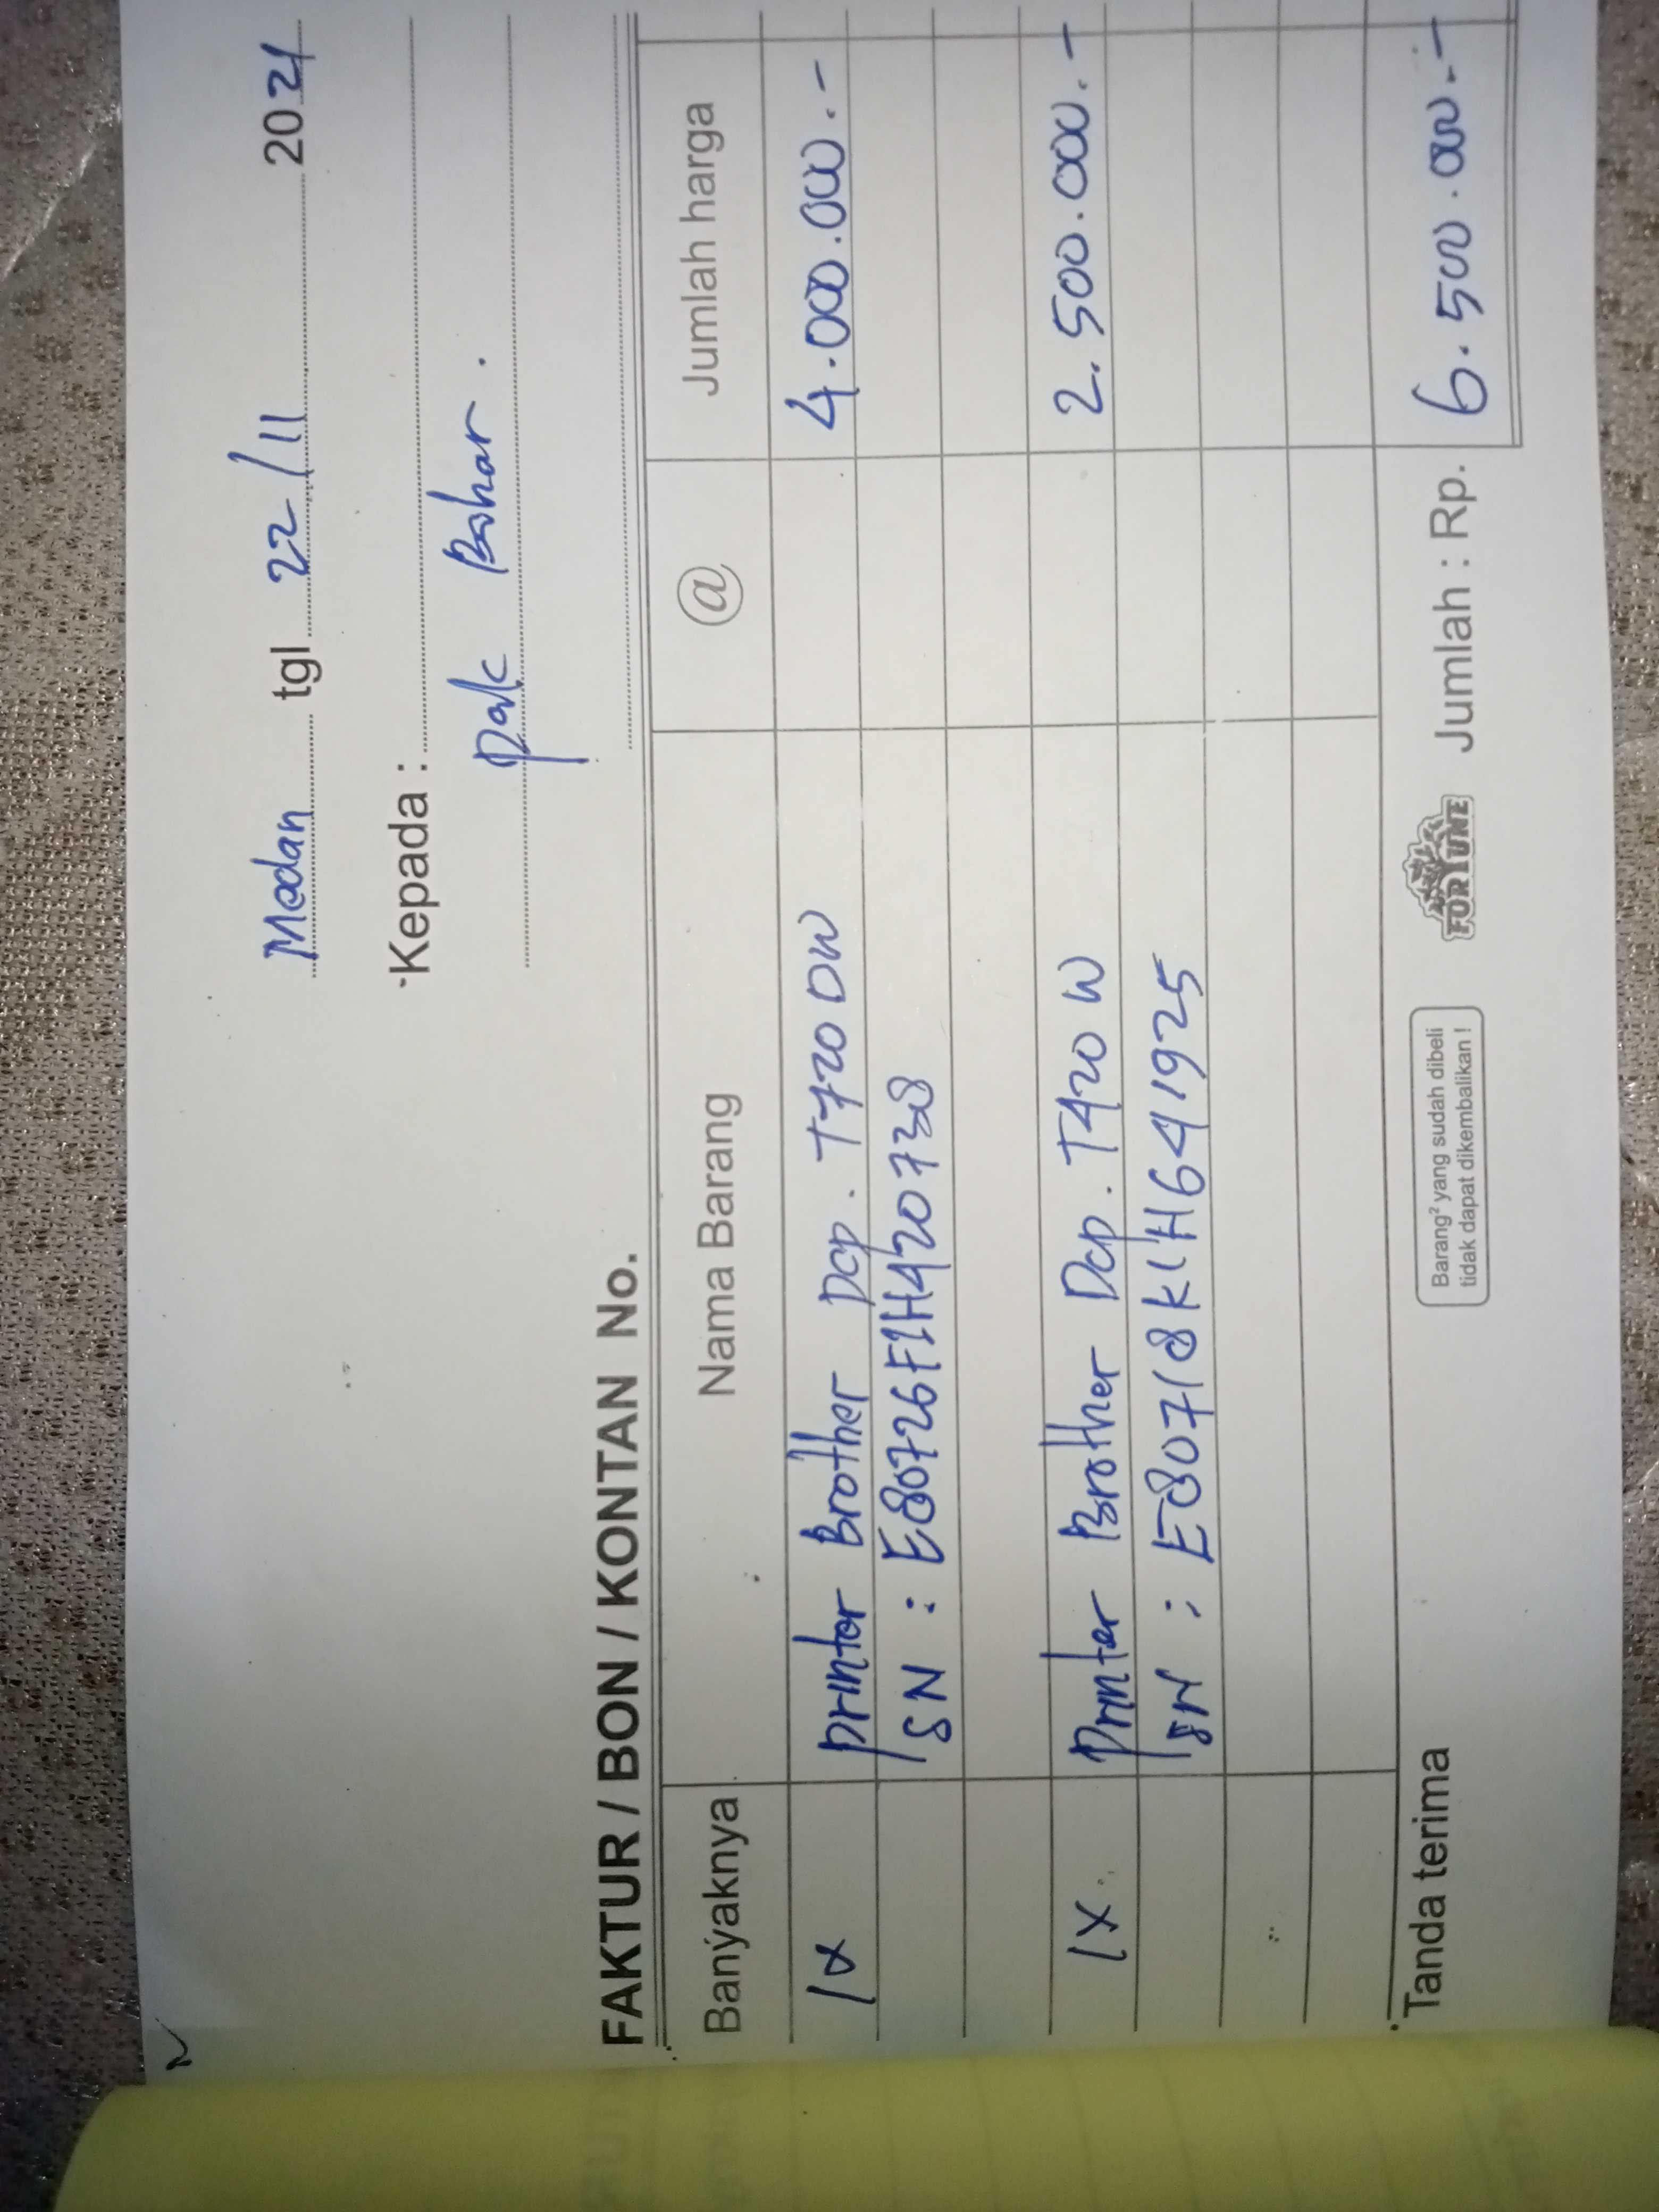 Medan tgl 22/11 2021
Kepada :
Pak Bahar.
FAKTUR / BON / KONTAN No.
Banyaknya Nama Barang @ Jumlah harga
1x printer Brother Dcp. T720 DW 4.000.000.-
SN : E80726F1H420738
1x. Printer Brother Dcp. T420 W 2.500.000.-
SN : E80718K1H641925
Tanda terima
Barang² yang sudah dibeli
tidak dapat dikembalikan !
FORTUNE
Jumlah : Rp. 6.500.000.-